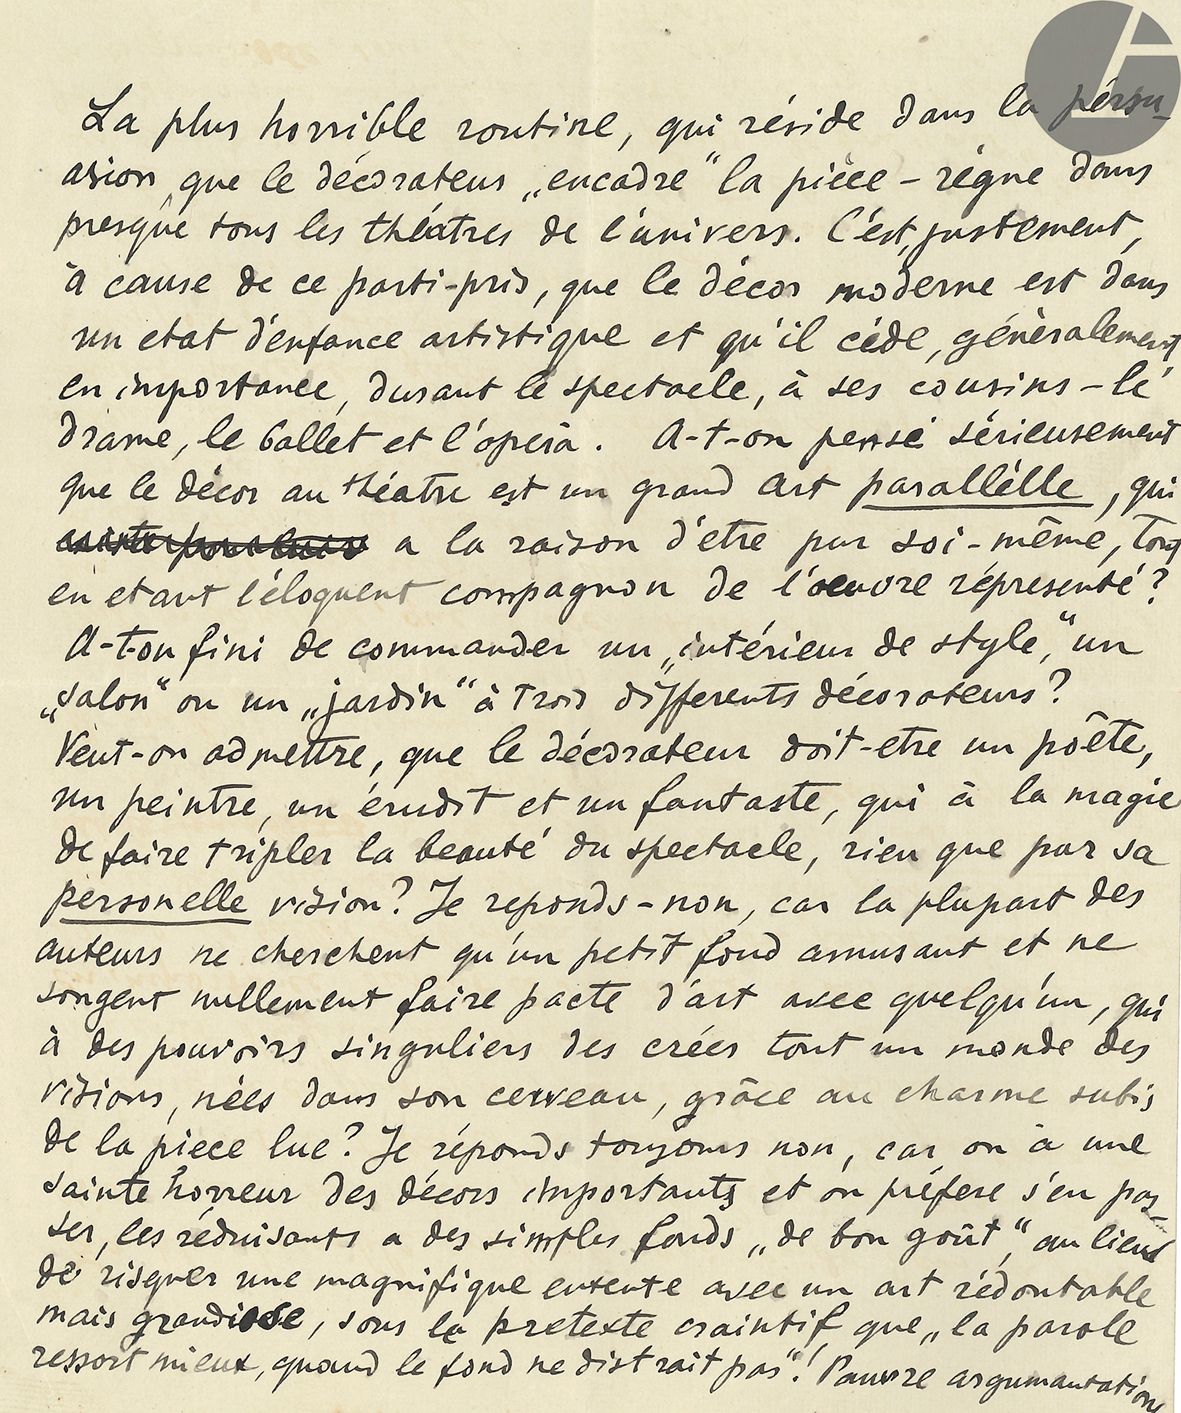 La plus horrible routine, qui réside dans la pérsu-
asion que le décorateur „encadre“ la pièce – règne dans
presque tous les théâtres de l'univers. C'est, justement,
à cause de ce parti-pris, que le décor moderne est dans
un etat d'enfance artistique et qu'il cède, généralement
en importance, durant le spectacle, à ses cousins – le
drame, le ballet et l'opéra. A-t-on pensé sérieusement
que le décor au théatre est un grand art parallélle, qui
a la raison d'être par soi-même, tout
en etant l'éloquent compagnon de l'oeuvre répresenté?
A-t-on fini de commander un „intérieur de style“, un
„salon“ ou un „jardin“ à trois differents décorateurs?
Veut-on admettre, que le décorateur doit-etre un poête,
un peintre, un érudit et un fantaste, qui à la magie
de faire tripler la beauté du spectacle, rien que par sa
personelle vision? Je reponds – non, car la plupart des
auteurs ne cherchent qu'un petit fond amusant et ne
songent nullement faire pacte d'art avec quelqu'un, qui
à des pouvoirs singuliers des créer tout un monde des
visions, nées dans son cerveau, grâce au charme subis
de la piece lue? Je réponds toujours non, car on à une
sainte horreur des décors importants et on préfere s'en pas-
ser, les réduisants a des simples fonds „de bon goût“, au lieu
de risquer une magnifique entente avec un art rédoutable
mais grandiose, sous le pretexte craintif que „la parole
ressort mieux, quand le fond ne distrait pas“! Pauvre argumantation